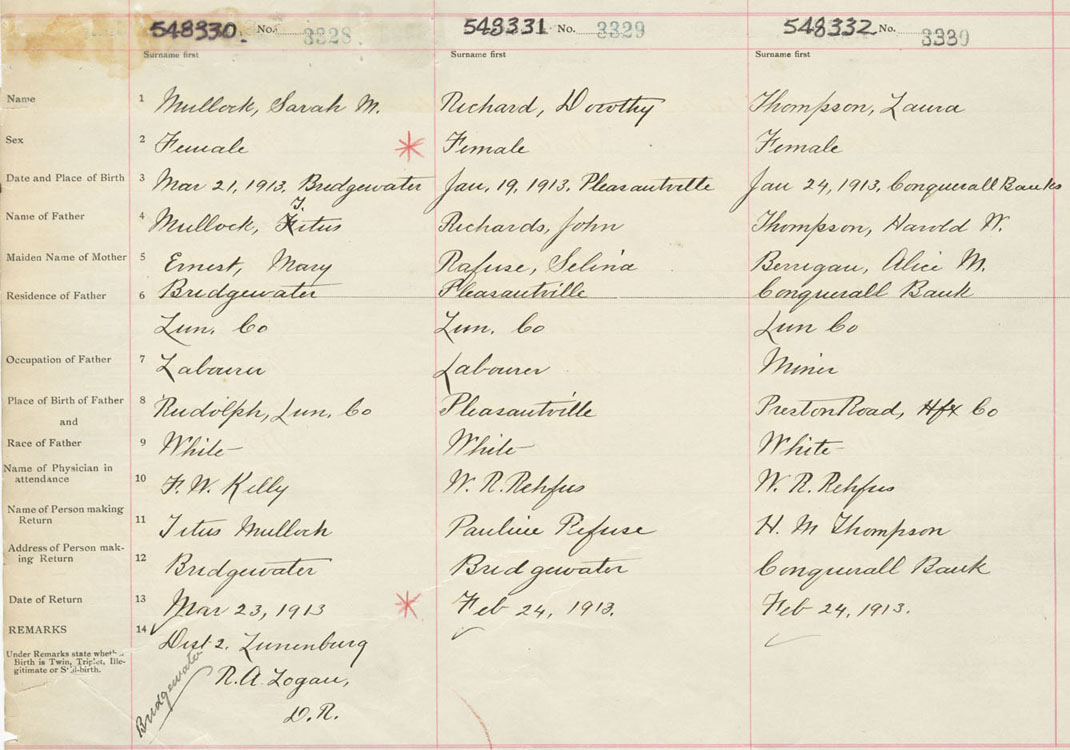 548330. No. 3328 548331 No. 3329 548332 No. 3330
Surname first Surname first Surname first
Name 1 Mullock, Sarah M. Richard, Dorothy Thompson, Laura
Sex 2 Female Female Female
Date and Place of Birth 3 Mar 21, 1913, Bridgewater Jan, 19, 1913. Pleasantville Jan 24, 1913, Conquerall Banks
T.
Name of Father 4 Mullock, Titus Richards, John Thompson, Harold W.
Maiden Name of Mother 5 Ernest, Mary Rafuse, Selina Berrigan, Alice M.
Residence of Father 6 Bridgewater Pleasantville Conquerall Bank
Lun. Co Lun. Co Lun Co
Occupation of Father 7 Labourer Labourer Miner
Place of Birth of Father 8 Rudolph, Lun. Co Pleasantville Preston Road, Hfx Co
and
Race of Father 9 White White White
Name of Physician in
attendance 10 F. W. Kelly W. R. Rehfus W. R. Rehfus
Name of Person making
Return 11 Titus Mulloch Pauline Refuse H. M Thompson
Address of Person mak-
ing Return 12 Bridgewater Bridgewater Conquerall Bank
Date of Return 13 Mar 23, 1913 Feb 24, 1913. Feb 24, 1913.
REMARKS 14 Dist 2. Lunenburg
Under Remarks state when a
Birth is Twin, Triplet, Ille-
gitimate or Still-birth.
Bridgewater
R. A. Logan,
D. R.